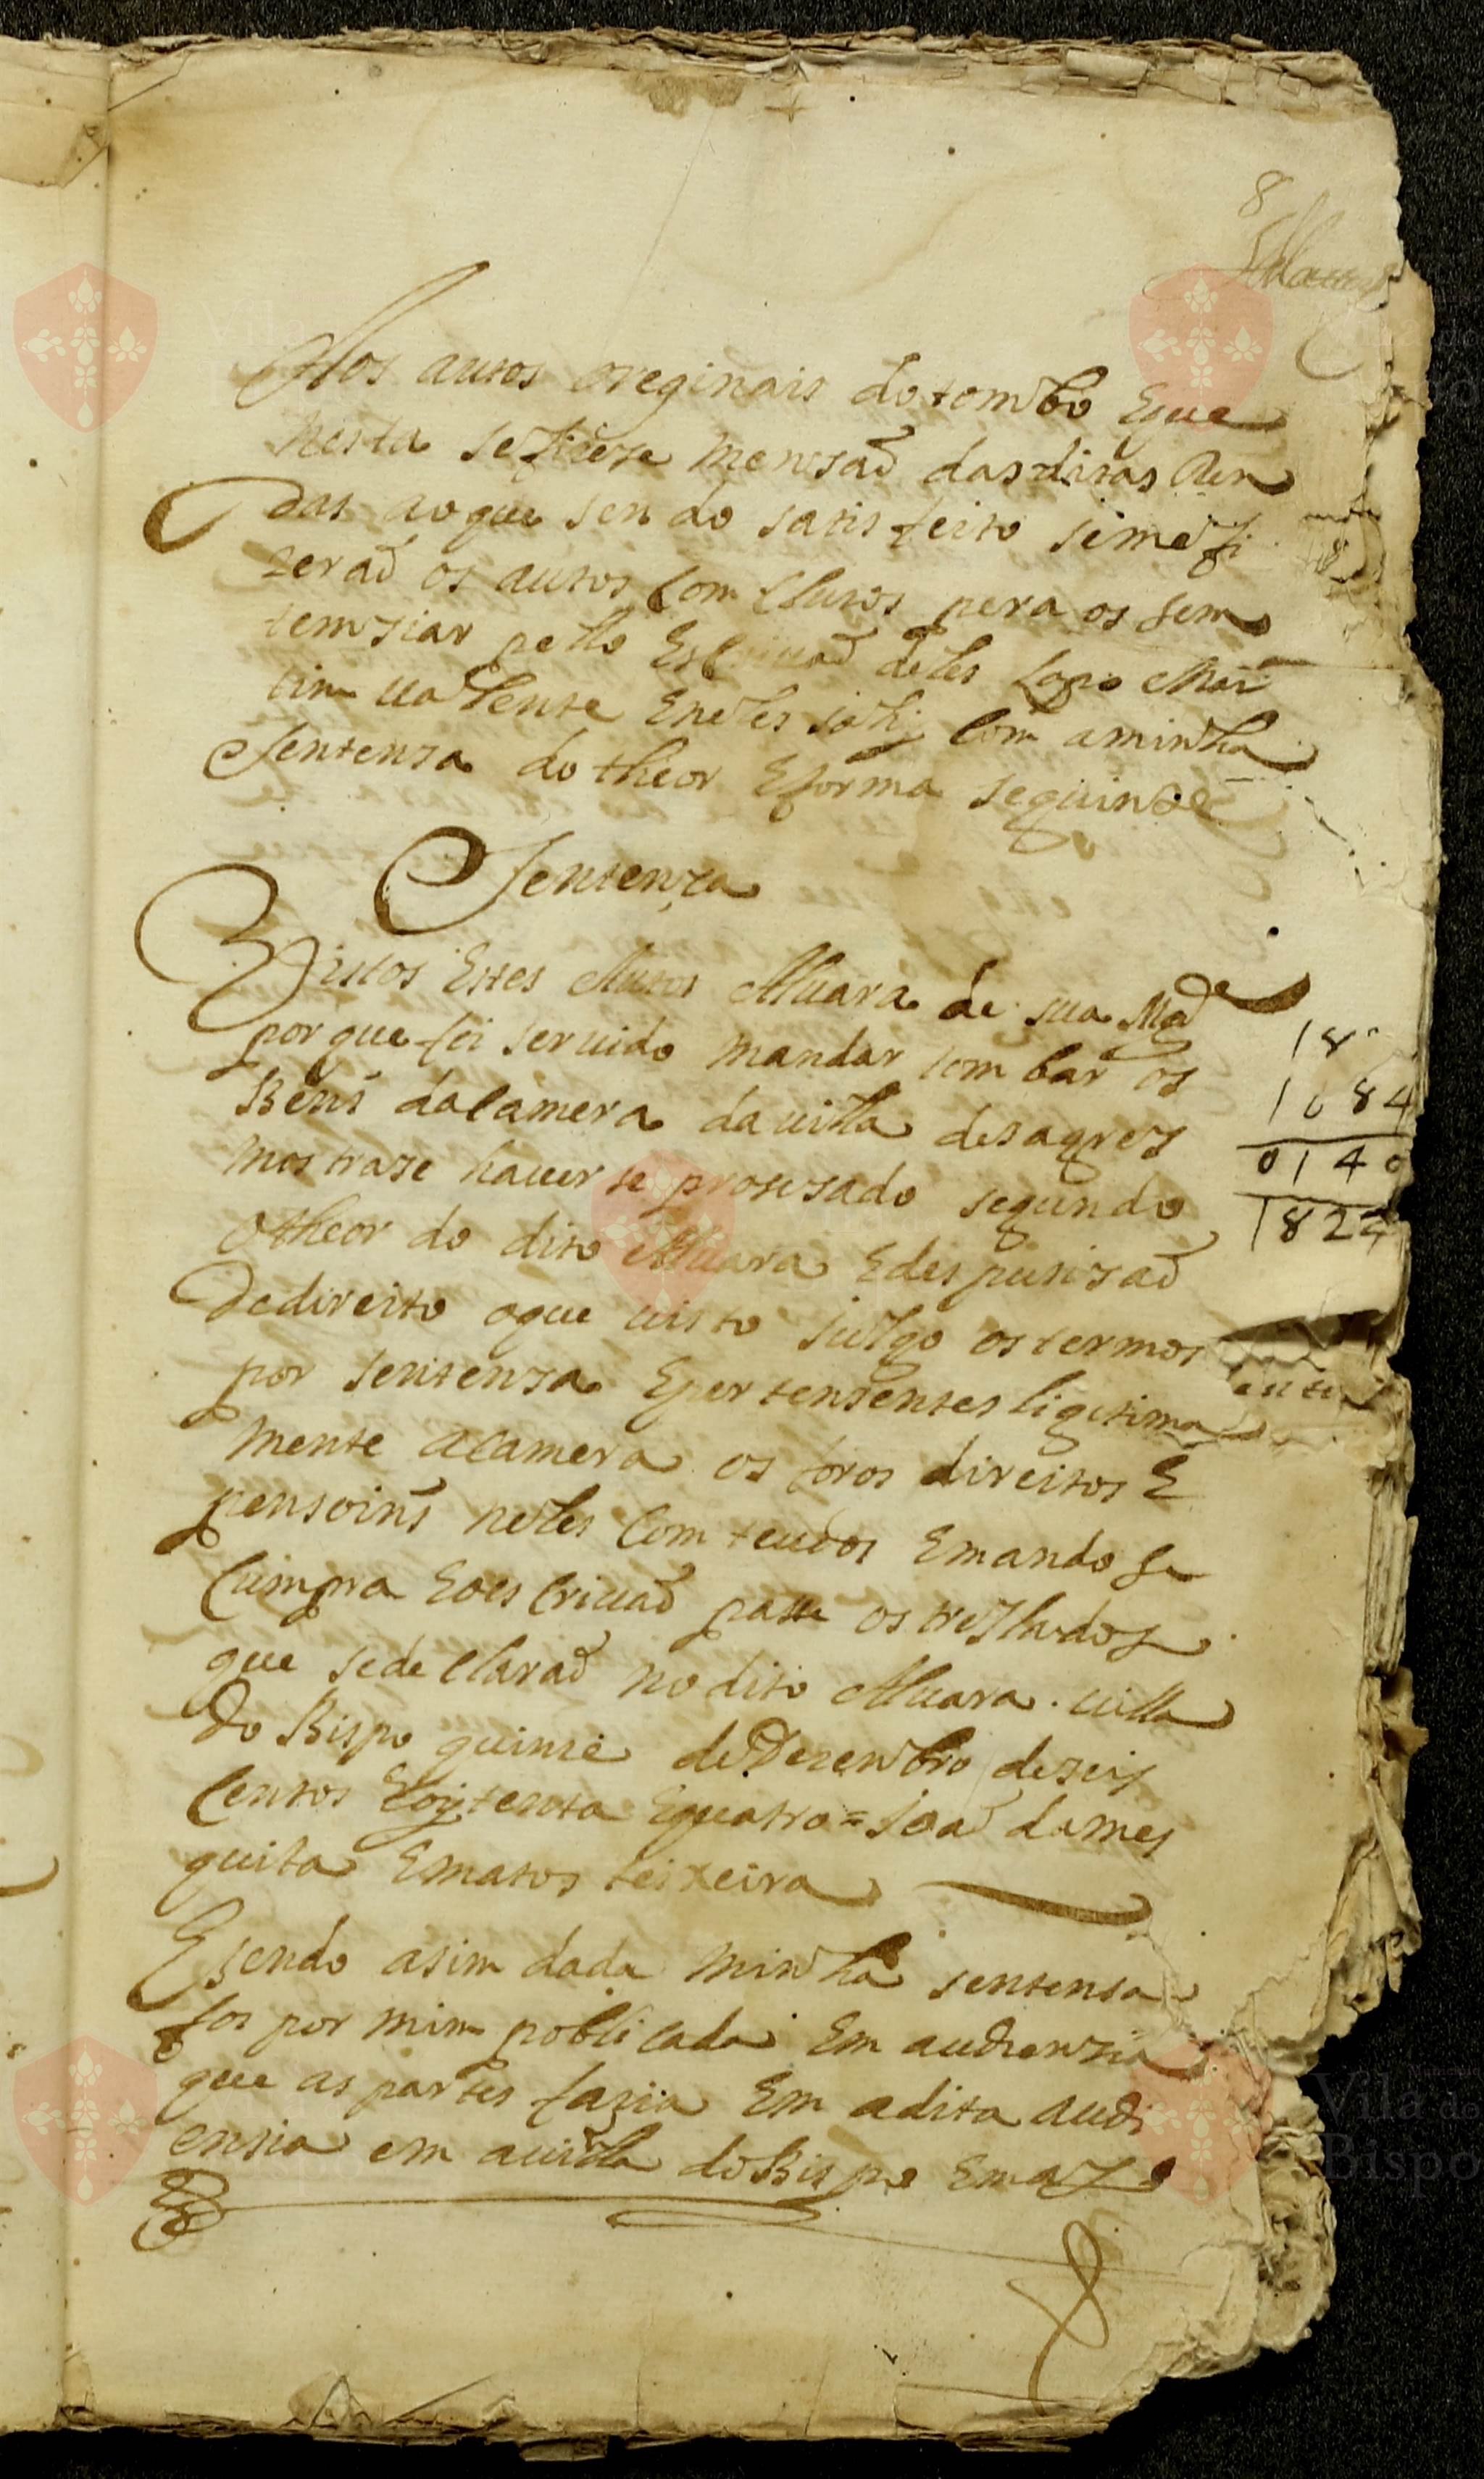 8
Nos autos oreginais do tombo Eque
nesta se fizese mensaõ das ditas Ren
das ao que sendo satis feito seme fi
zeraõ os autos Com Cluzos pera os sem
temsiar pello Escriuaõ deles Lopo Mar
tim ualente Eneles sahj Com aminha
Sentensa do theor Eforma seguinte
Sentensa
Vistos Estes Autos Aluara de sua Mag.de
por que foi seruido mandar tombar os
Bens dacamera da uilla desagres
mostrase hauer se prosesado segundo
otheor do dito Aluara Edespusisaõ
Dedireito oque uisto julgo os termos
por sentensa Epertensentes ligitima
mente acamera os foros direitos E
pensoins neles Com teudos Emando se
Cumpra Eoes Criuaõ passe os treslados
que sede Claraõ no dito Aluara. uilla
do Bispo quinze de Dezenbro de seis
Centos Eojtenta Equatro = Joaõ da mes
quita Ematos teixeira
E sendo asim dada minha sentensa
foi por mim poblicada Em audiensia
que as partes fazia Em adita audi
ensia em auilla do Bispo Emaz
18
1684
0140
1824